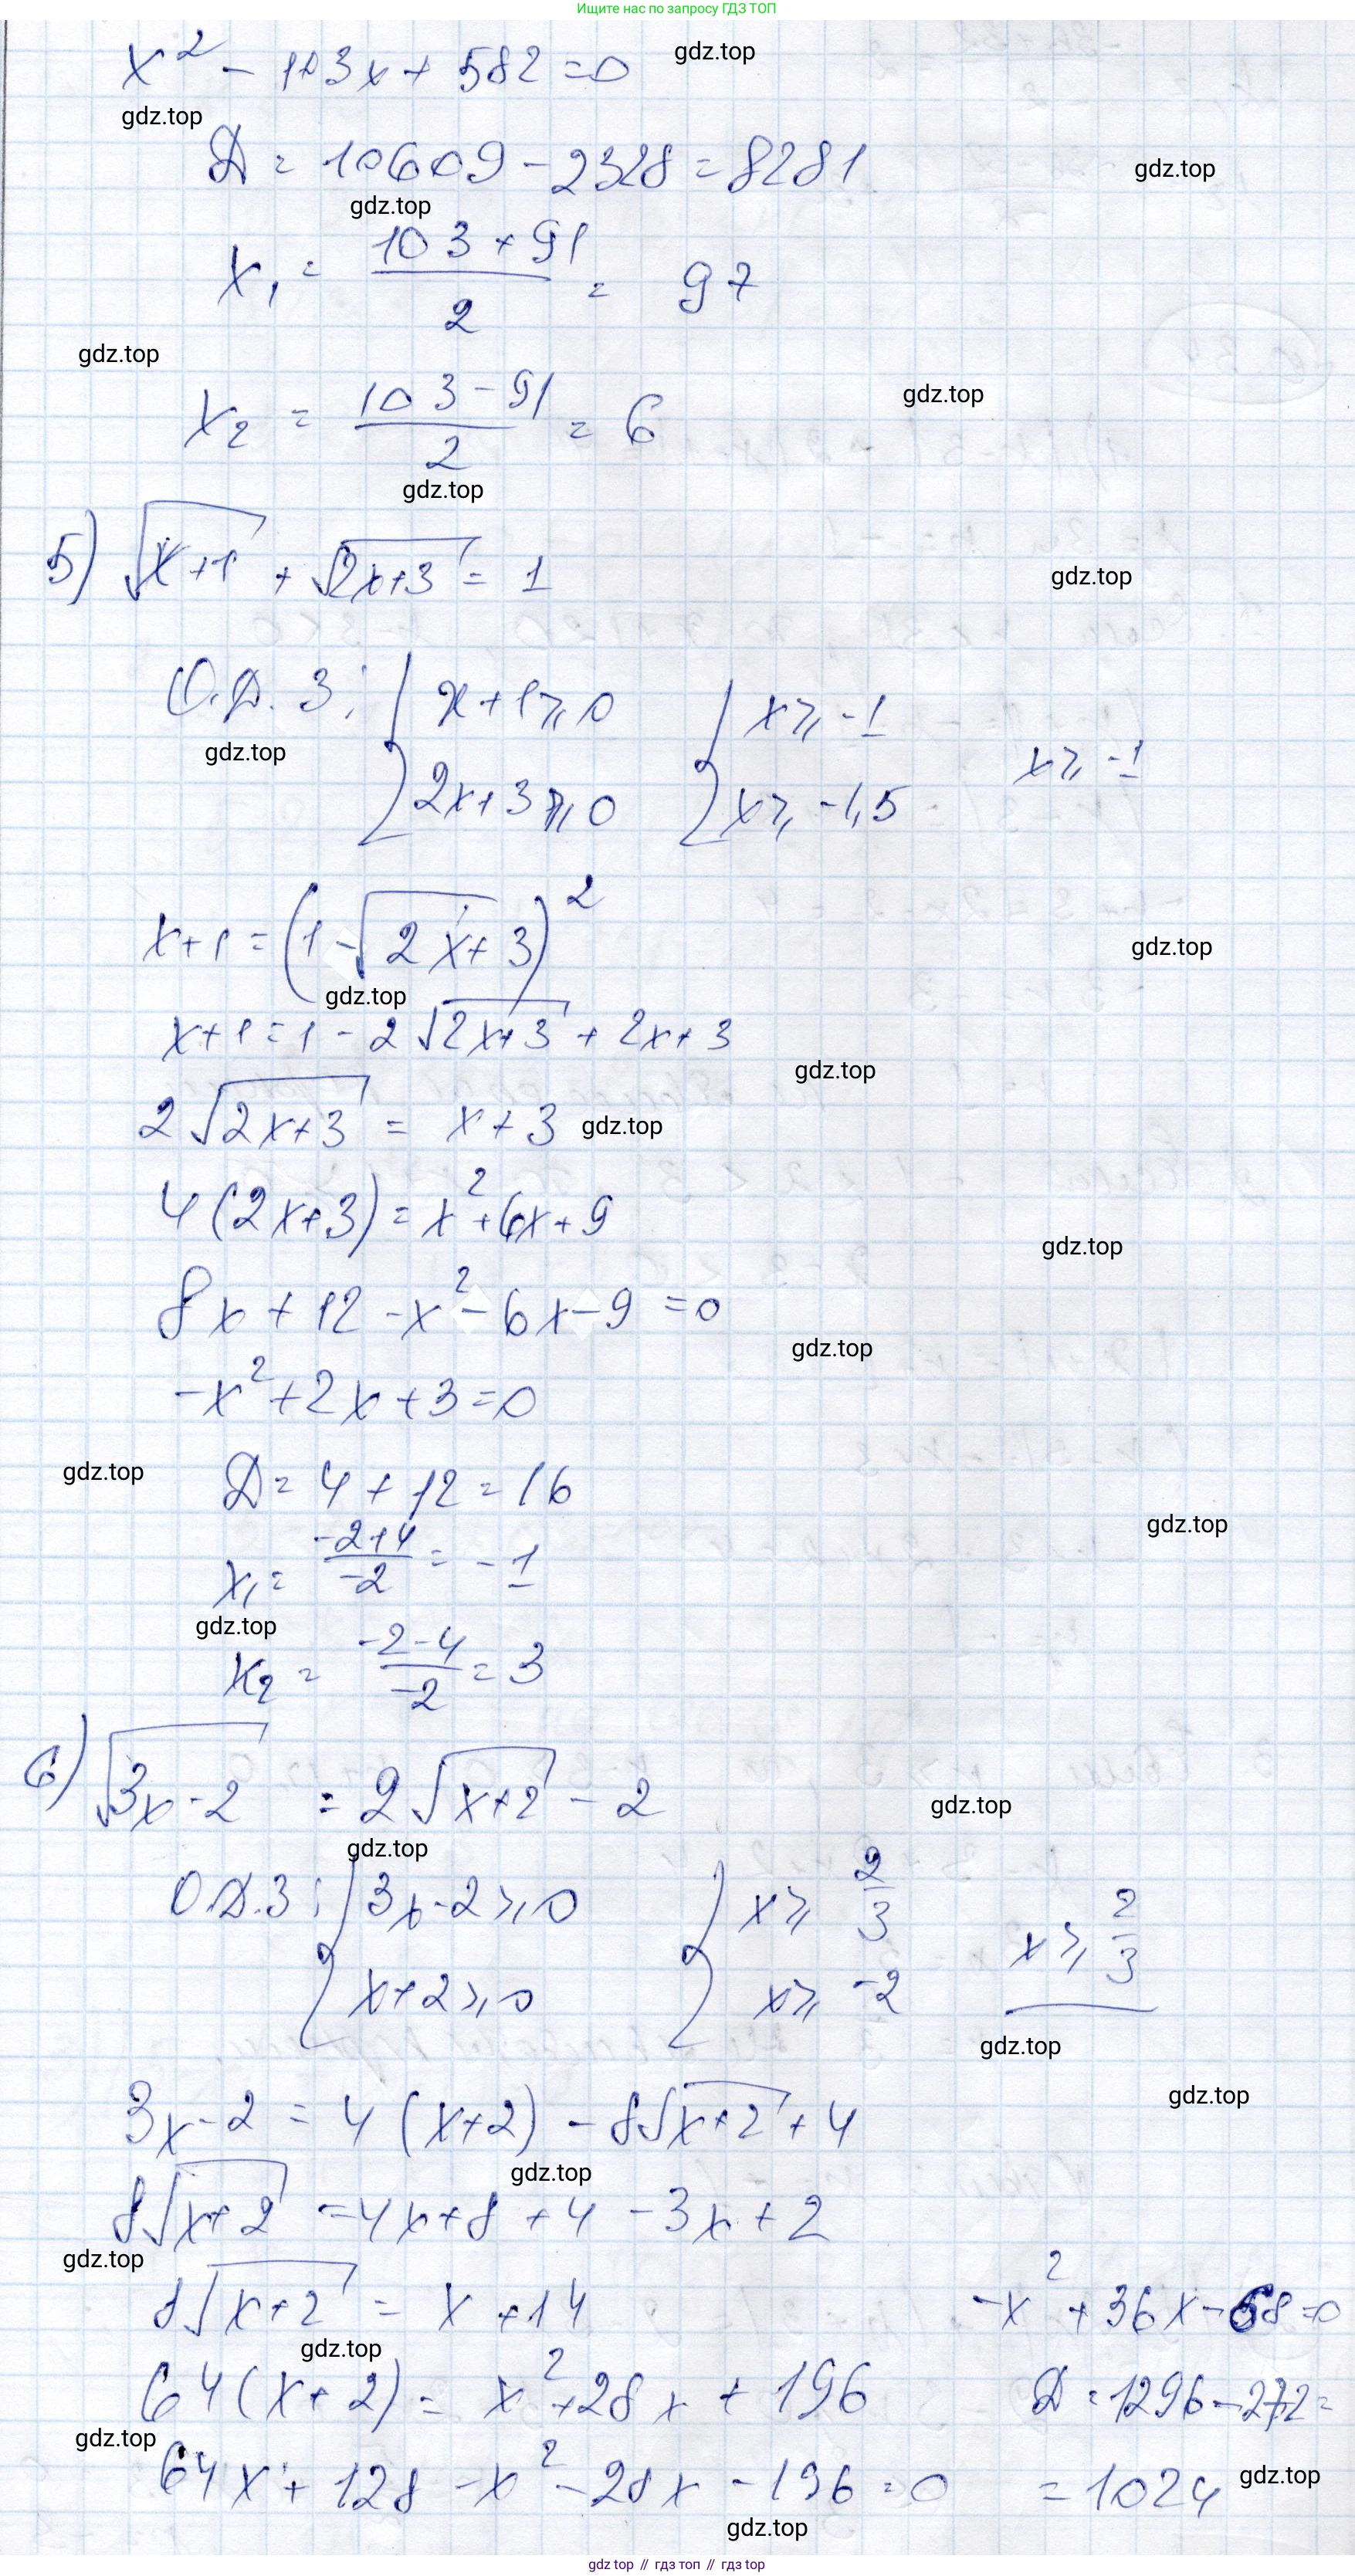 Ищите нас по запросу ГДЗ ТОП
x² - 103x + 582 = 0
gdz.top
gdz.top
Д = 10609 - 2328 = 8281
gdz.top
gdz.top
x₁ = (103 + 91)/2 = 97
gdz.top
x₂ = (103 - 91)/2 = 6
gdz.top
gdz.top
5) √(x+1) + √(2x+3) = 1
gdz.top
О.Д.З: { x + 1 ⩾ 0 { x ⩾ -1 x ⩾ -1
gdz.top
2x + 3 ⩾ 0 x ⩾ -1,5
x + 1 = (1 - √(2x + 3))²
gdz.top
gdz.top
x + 1 = 1 - 2√(2x+3) + 2x + 3
gdz.top
2√(2x+3) = x + 3
gdz.top
4(2x+3) = x² + 6x + 9
gdz.top
8x + 12 - x² - 6x - 9 = 0
gdz.top
-x² + 2x + 3 = 0
gdz.top
Д = 4 + 12 = 16
gdz.top
x₁ = (-2+4)/-2 = -1
gdz.top
x₂ = (-2-4)/-2 = 3
6) √(3x - 2) = 2√(x+2) - 2
gdz.top
gdz.top
О.Д.З: { 3x - 2 ⩾ 0 { x ⩾ 2/3 x ⩾ 2/3
x + 2 ⩾ 0 x ⩾ -2
gdz.top
gdz.top
3x - 2 = 4(x+2) - 8√(x+2) + 4
gdz.top
8√(x+2) = 4x + 8 + 4 - 3x + 2
gdz.top
8√(x+2) = x + 14
gdz.top
64(x + 2) = x² + 28x + 196
gdz.top
64x + 128 - x² - 28x - 196 = 0
gdz.top
-x² + 36x - 68 = 0
Д = 1296 - 272 =
= 1024
gdz.top
gdz top // гдз топ // gdz top